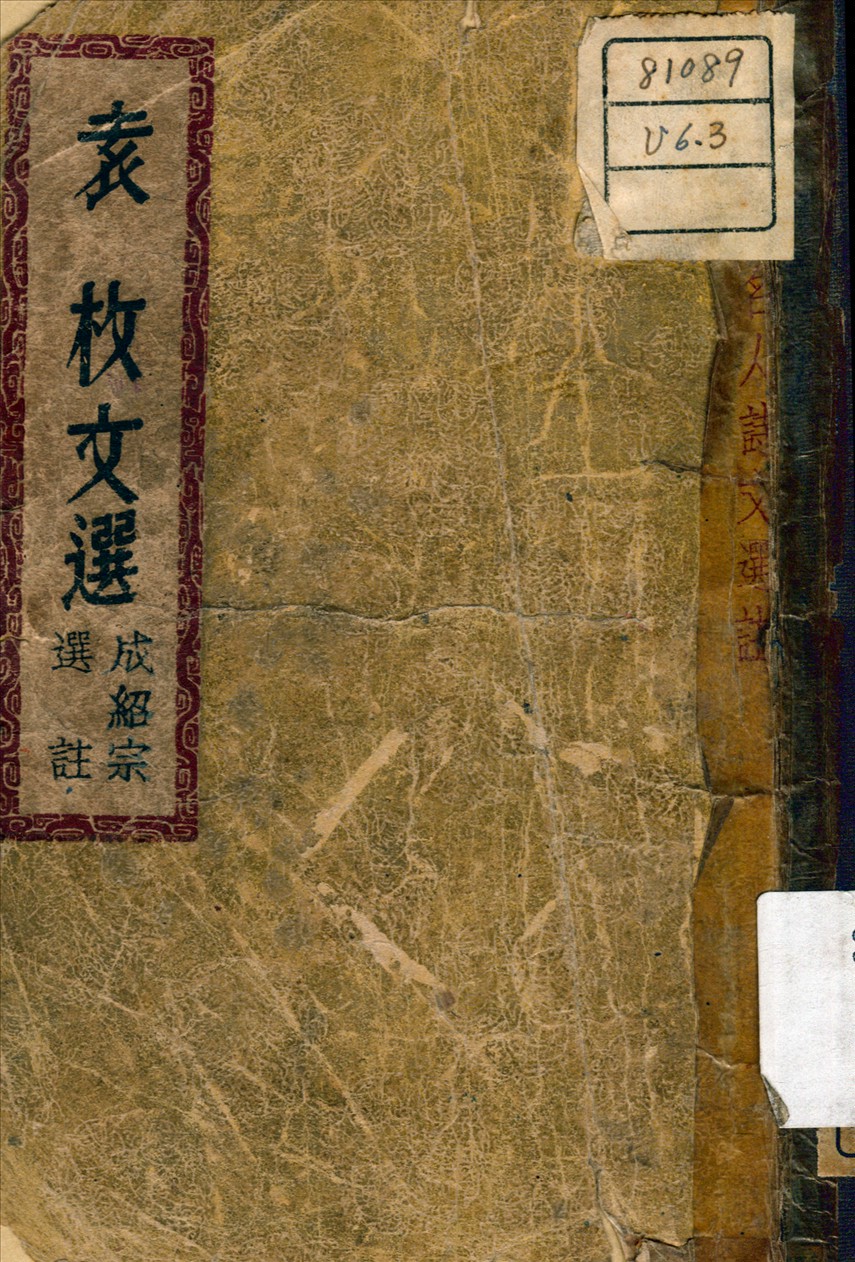 袁枚文選
成紹宗
選註
81089
V6.3
名人詩文選註